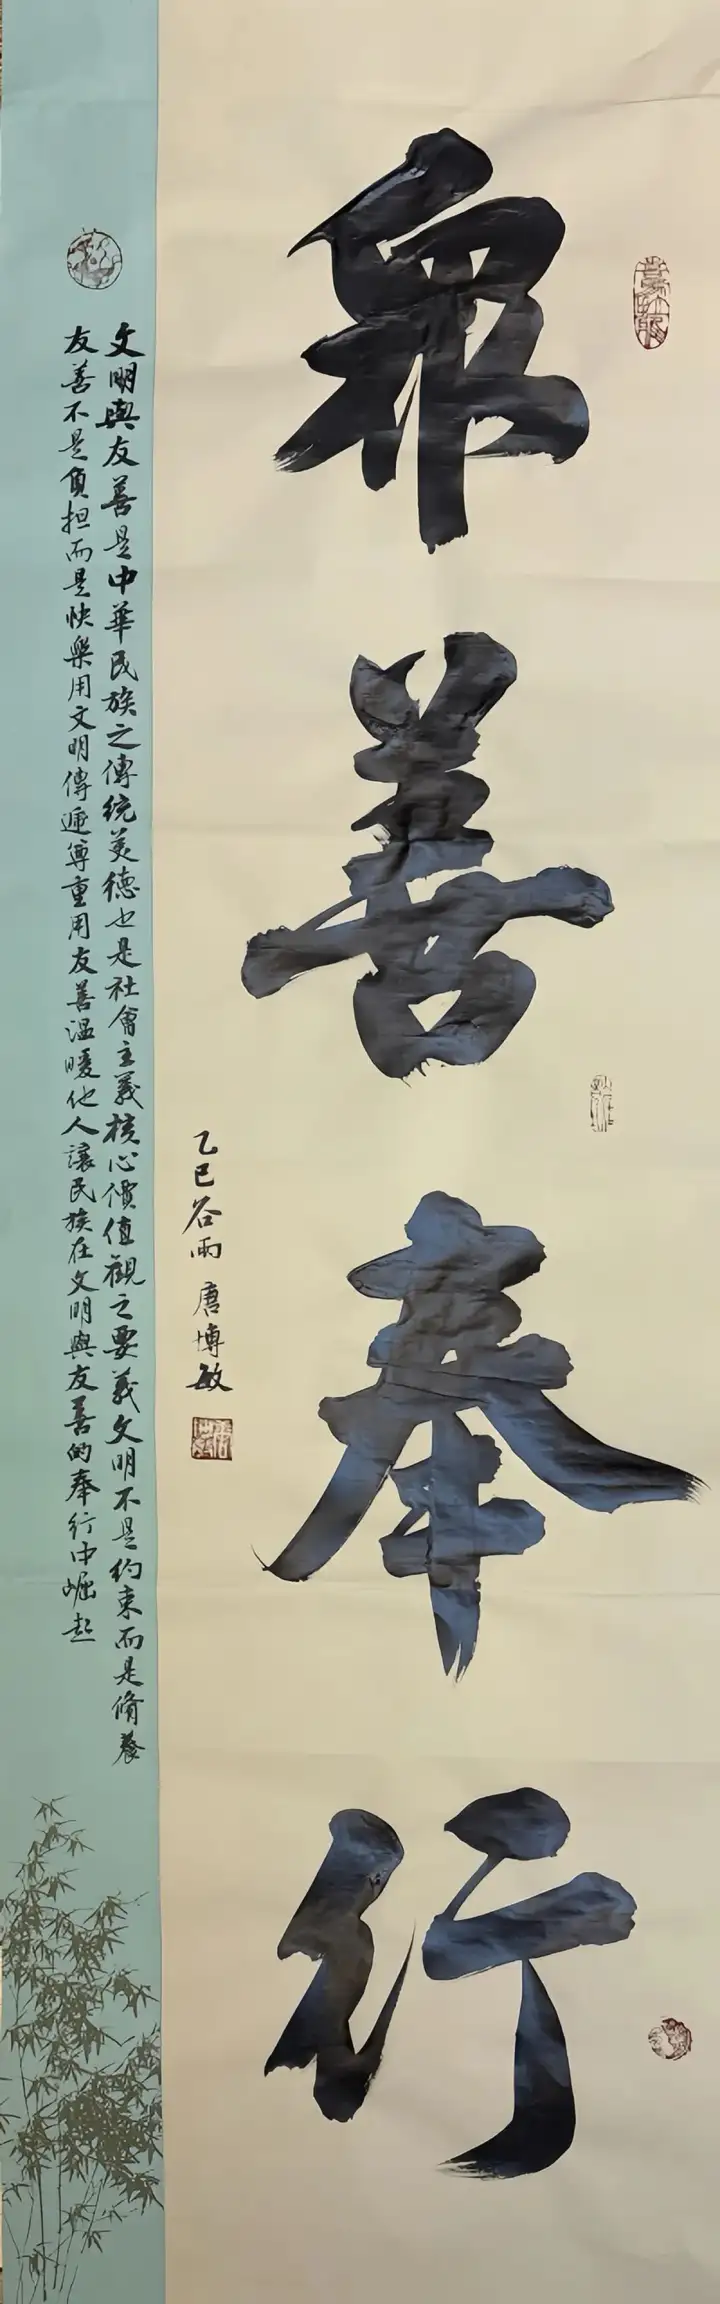 衆善奉行
乙巳谷雨 唐博敏
文明與友善是中華民族之傳統美德也是社會主義核心價值觀之要義文明不是約束而是脩養
友善不是負担而是快樂用文明傳遞尊重用友善温暖他人讓民族在文明與友善的奉行中崛起